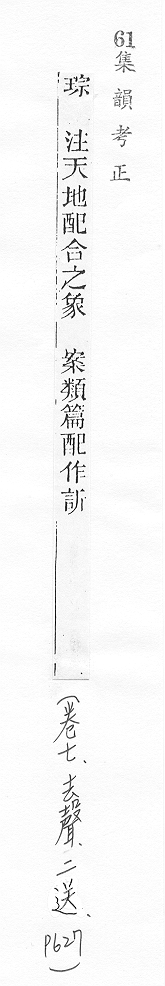 61集韻考正
琮　注天地配合之象　案類篇配作訢
（卷七、去聲、二送、P627）